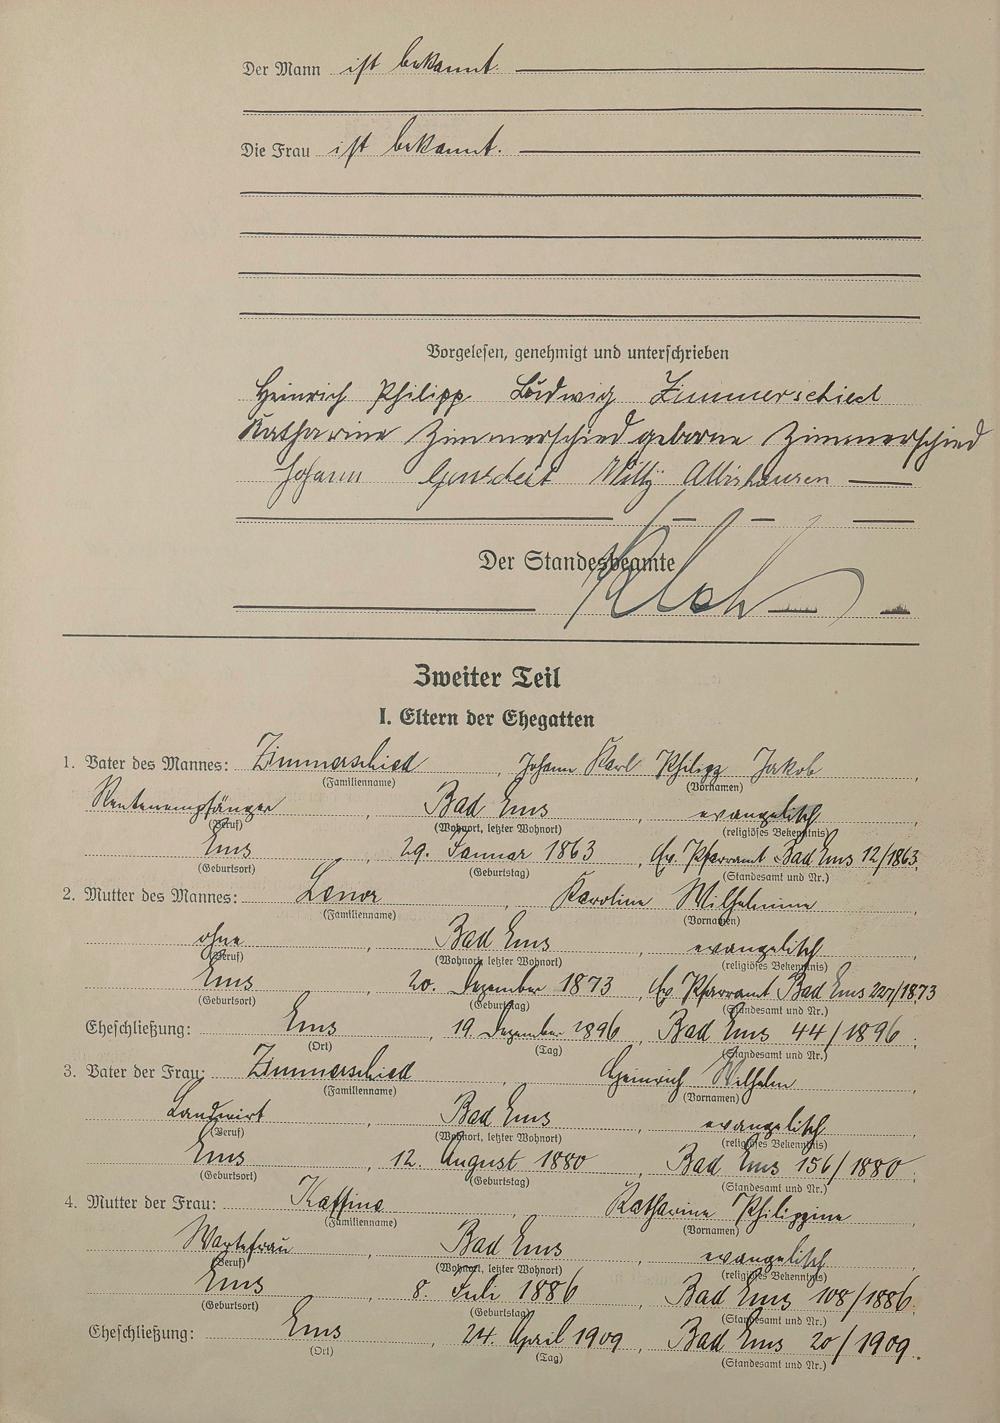 Der Mann ist bekannt.
Die Frau ist bekannt.
Vorgelesen, genehmigt und unterschrieben
Heinrich Philipp Ludwig Zimmerschied
Katharine Zimmerschied geborne Zimmerschied
Johann Willy
Der Standesbeamte
Zweiter Teil
I. Eltern der Ehegatten
1. Vater des Mannes: Zimmerschied, Johann Karl Philipp Jakob,
(Familienname) (Vornamen)
Rentenempfänger, Bad Ems, evangelisch
(Beruf) (Wohnort, letzter Wohnort) (religiöses Bekenntnis)
Ems, 29. Januar 1863, Ev. Pfarramt Bad Ems 12/1863.
(Geburtsort) (Geburtstag) (Standesamt und Nr.)
2. Mutter des Mannes: Karoline Wilhelmine,
(Familienname) (Vornamen)
ohne, Bad Ems, evangelisch
(Beruf) (Wohnort, letzter Wohnort) (religiöses Bekenntnis)
Ems, 20. Dezember 1873, Ev. Pfarramt Bad Ems 227/1873
(Geburtsort) (Geburtstag) (Standesamt und Nr.)
Eheschließung: Ems, 19. Dezember 1896, Bad Ems 44/1896.
(Ort) (Tag) (Standesamt und Nr.)
3. Vater der Frau: Zimmerschied, Heinrich Wilhelm,
(Familienname) (Vornamen)
Landwirt, Bad Ems, evangelisch
(Beruf) (Wohnort, letzter Wohnort) (religiöses Bekenntnis)
Ems, 12. August 1880, Bad Ems 156/1880.
(Geburtsort) (Geburtstag) (Standesamt und Nr.)
4. Mutter der Frau: Katharine Philippine,
(Familienname) (Vornamen)
Wartefrau, Bad Ems, evangelisch
(Beruf) (Wohnort, letzter Wohnort) (religiöses Bekenntnis)
Ems, 8. Juli 1886, Bad Ems 108/1886.
(Geburtsort) (Geburtstag) (Standesamt und Nr.)
Eheschließung: Ems, 24. April 1909, Bad Ems 20/1909.
(Ort) (Tag) (Standesamt und Nr.)